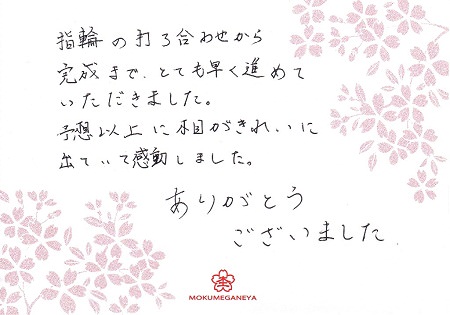 指輪の打ち合わせから
完成まで、とても早く進めて
いただきました。
予想以上に木目がきれいに
出ていて感動しました。
ありがとう
ございました
MOKUMEGANEYA